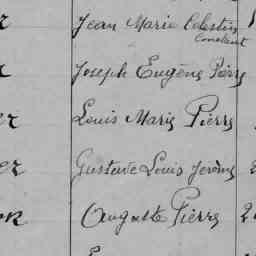 Jean Marie Celestin
Constant
Joseph Eugène Pierre
er Louis Marie Pierre
er Gustave Louis Jerôme
Auguste Pierre 2